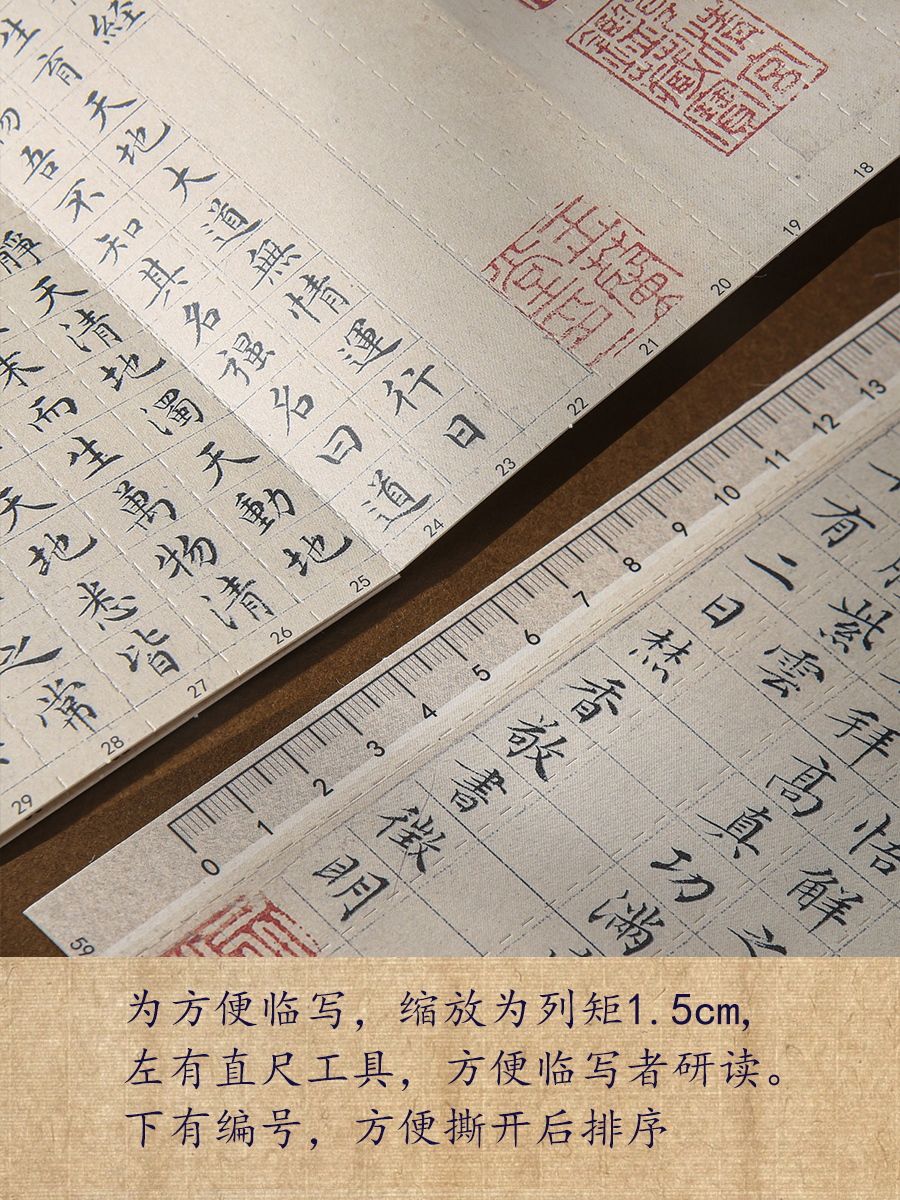 經
生育天地大道無情運行日
吾不知其名强名曰道
靜天清地濁天動地
末而生萬物清
天地悉皆
之常
18
19
20
21
22
23
24
25
26
27
28
29
悟解之
拜高真功滿
紫雲
有二日焚香敬書徵明
0 1 2 3 4 5 6 7 8 9 10 11 12 13
59
为方便临写，缩放为列矩1.5cm,
左有直尺工具，方便临写者研读。
下有编号，方便撕开后排序